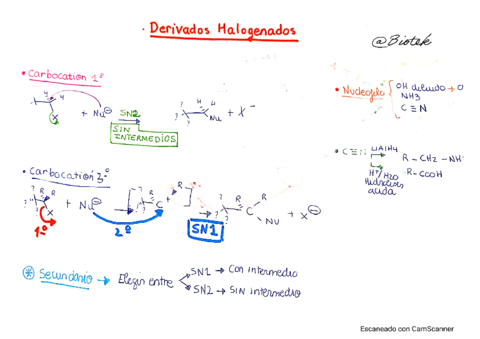 · Derivados Halogenados
@Biotek
· Carbocation 1º
H H
X + Nu⊖ SN2 → H H Nu + X⁻
SIN INTERMEDIOS
· Nucleofilo { OH diluido → O
NH3
C≡N
· C≡N LiAlH4 → R-CH2-NH
H⁺/H2O → R-COOH
Hidrólisis ácida
· Carbocation 3º
R R X + Nu⊖ → [ R C + R ] → R C R Nu + X⊖
1º 2º SN1
* Secundario → Elegir entre
SN1 → Con intermedio
SN2 → SIN intermedio
Escaneado con CamScanner